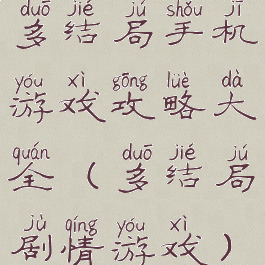 duō jié jú shǒu jī
多结局手机
yóu xì gōng lüè dà
游戏攻略大
quán duō jié jú
全(多结局
jù qíng yóu xì
剧情游戏)